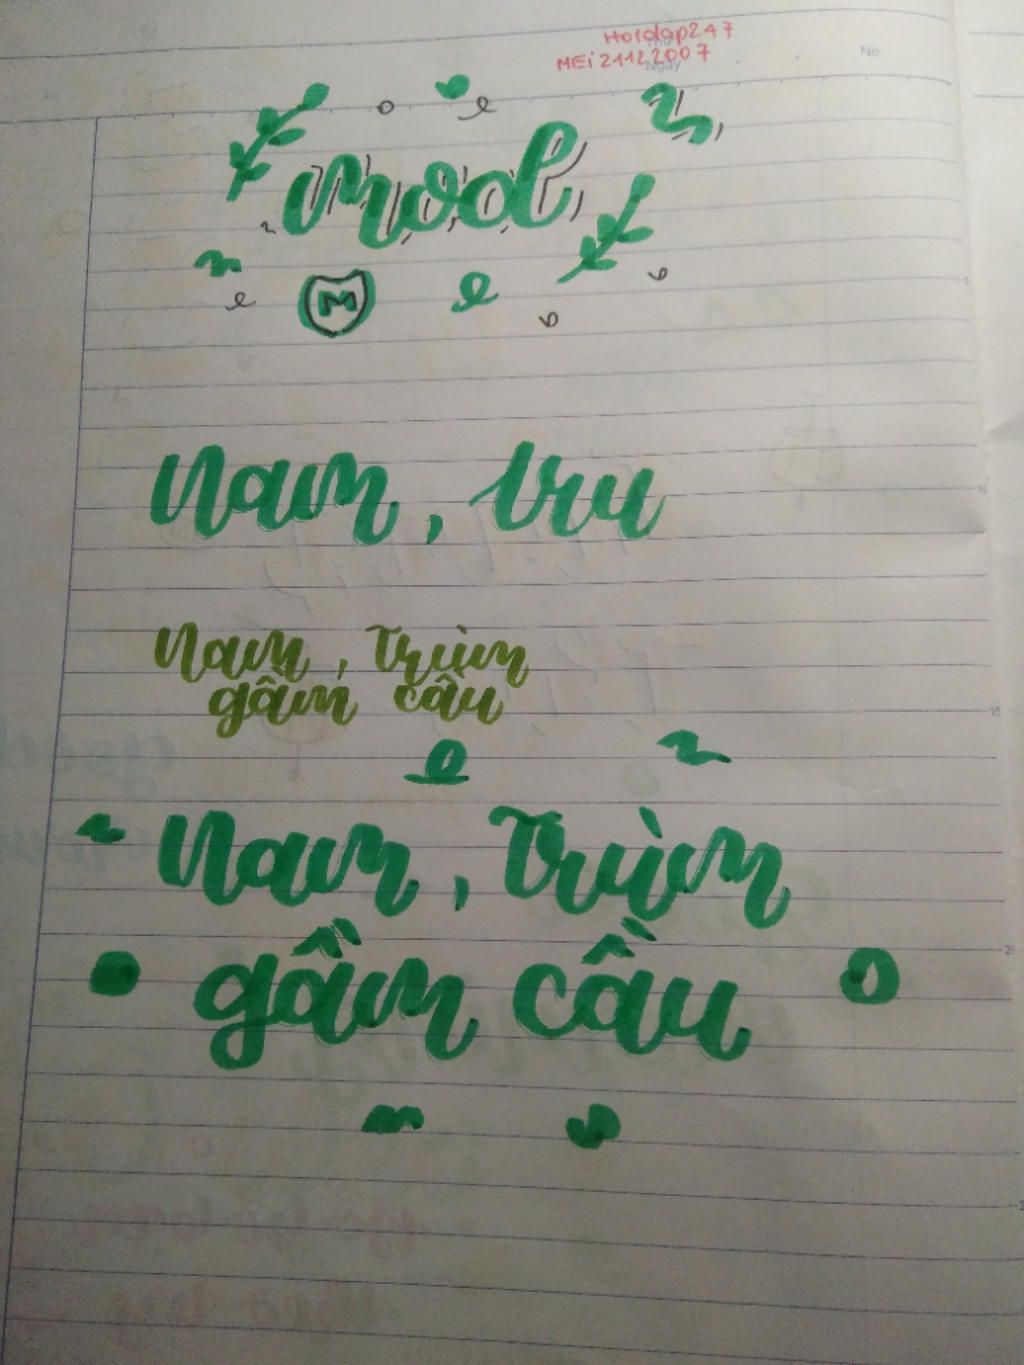 Hoidap247
MEi21122007
Thứ
Ngày
No.
mool
M
Nam, tru
Nam, Trùm
gầm cầu
Nam, Trùm
gầm cầu